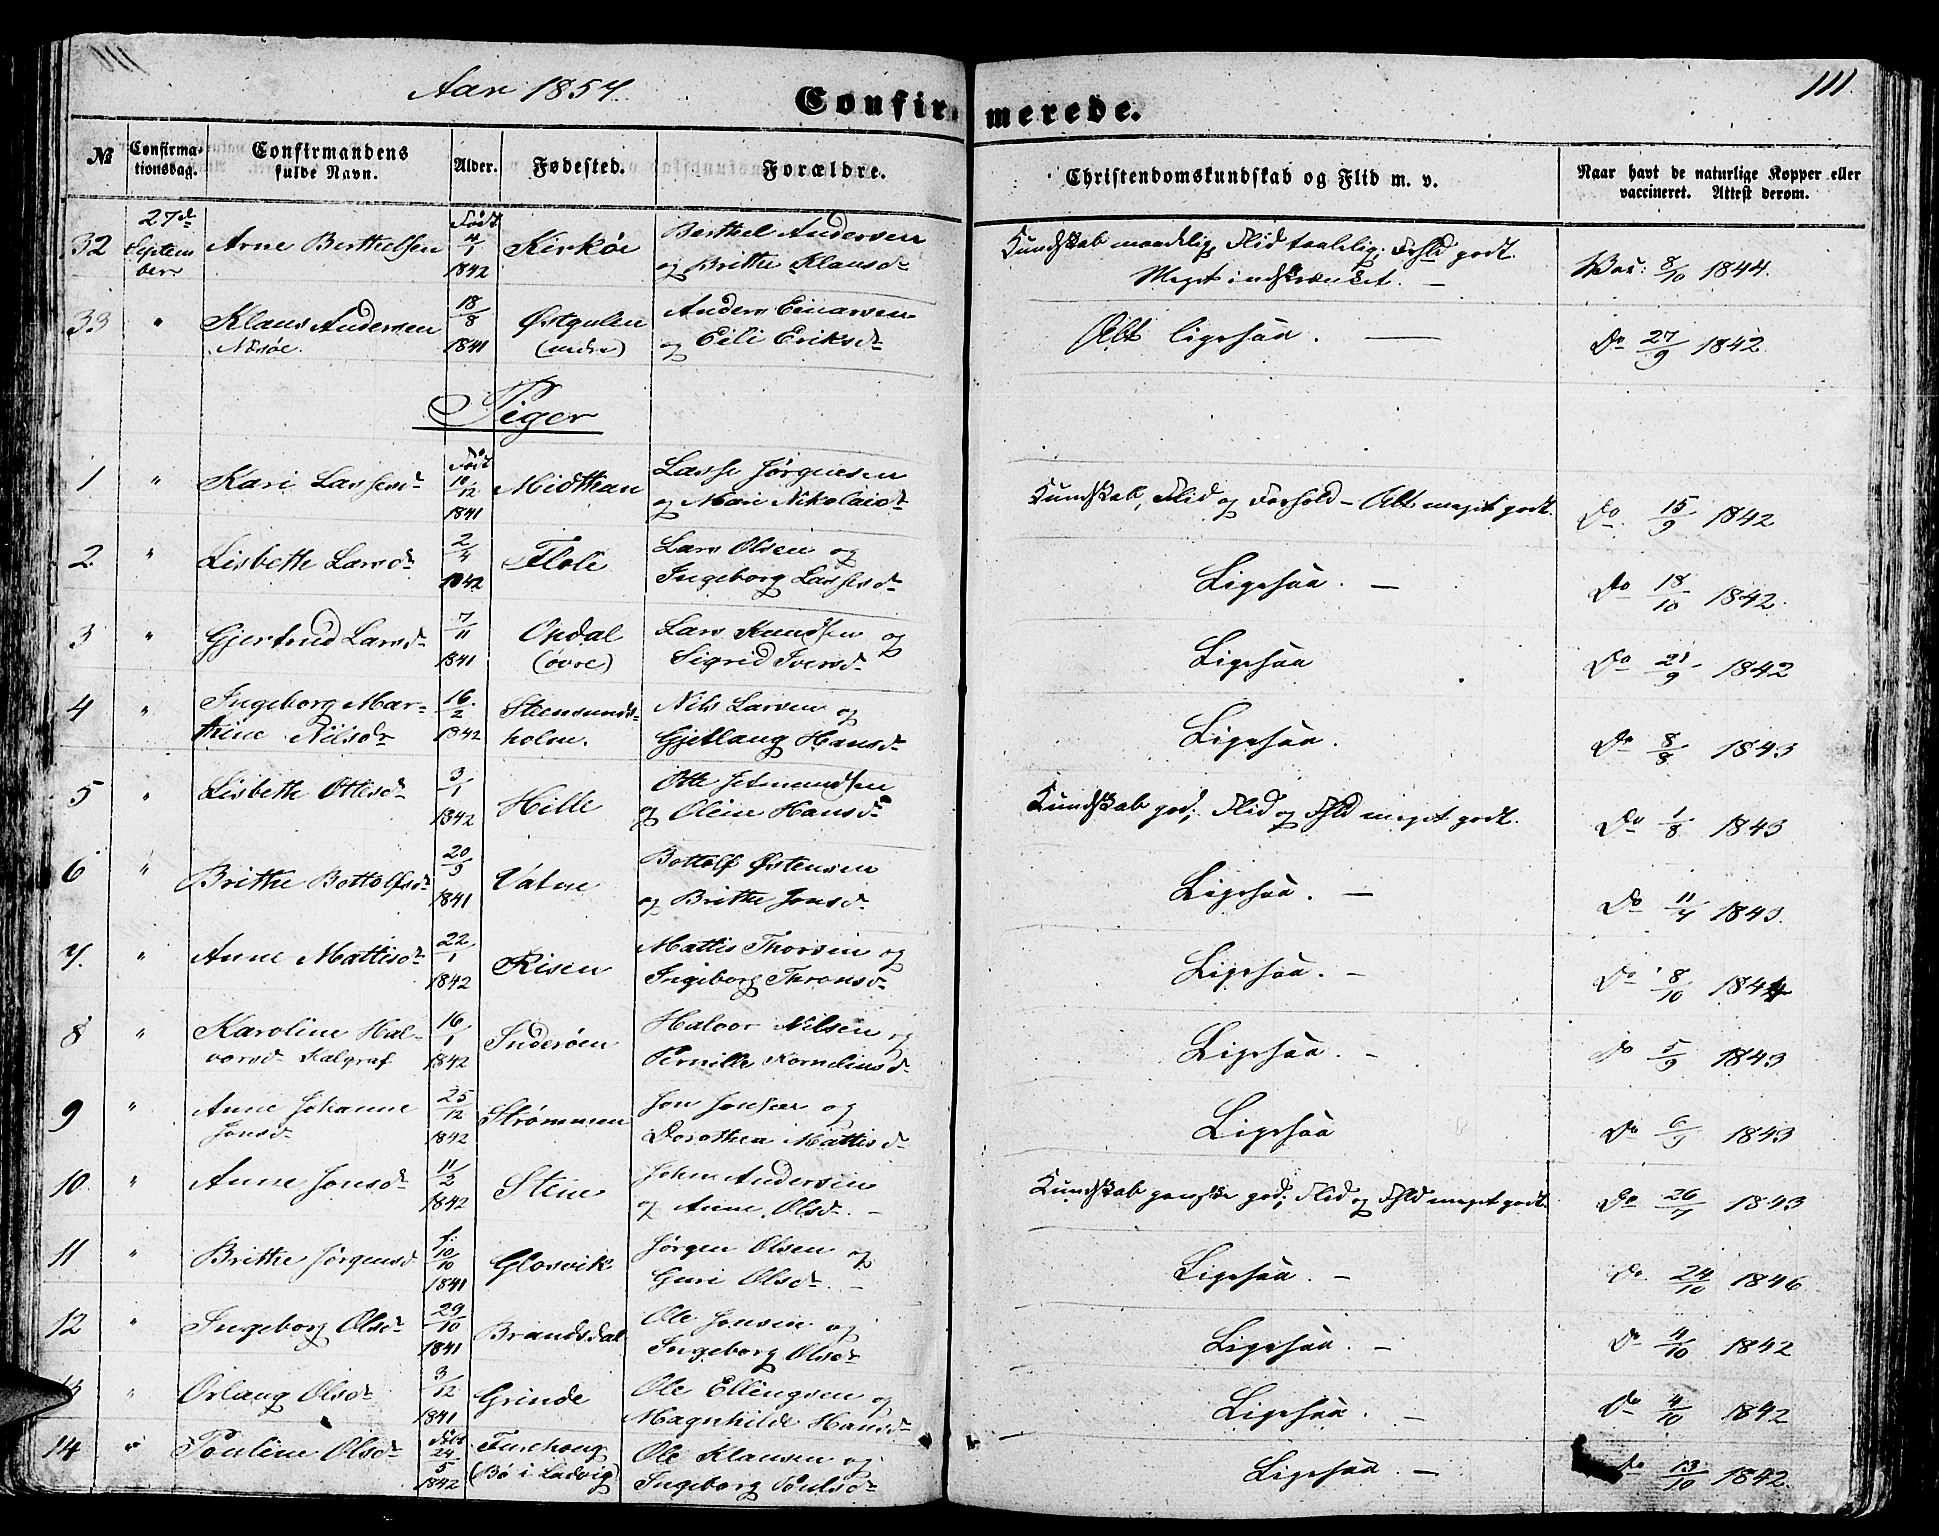 Aar 1857.
Confirmerede.
111.
№ Confirmationsdag. Confirmandens fulde Navn. Alder. Fødested. Forældre. Christendomskundskab og Flid m. v. Naar havt de naturlige Kopper eller vaccineret. Attest derom.
32 27de September Arne Berthelsen Født 4/1 1842 Kirkøe Berthel Andersen og Brithe Klausdr Kundskab maadelig, Flid taalelig; Forhld godt. Meget indskrænket. — Vac: 8/10 1844.
33 " Klaus Andersen Næsøe. 18/8 1841 Østgulen (indre) Anders Einarsen og Eili Eriksdr Alt ligesaa. — Do 27/9 1842.
Piger
1 " Kari Lassesdr Født 10/12 1841 Midthun Lasse Jørgensen og Mari Nikolaidr Kundskab, Flid og Forhold – Alt meget godt. Do 15/9 1842
2. " Lisbethe Larsdr 2/4 1842 Flole Lars Olsen og Ingeborg Lassesdr Ligesaa. — Do 18/10 1842.
3 " Gjertrud Larsdr 7/11 1841 Opdal (øvre) Lars Knudsen og Sigrid Iversdr Ligesaa Do 21/9 1842
4 " Ingeborg Marthine Nilsdr 16/2 1842 Steensundsholm. Nils Larsen og Gjetlaug Hansdr Ligesaa. Do 8/8 1843
5 " Lisbeth Ottesdr 3/1 1842 Hille Otte Jetmundsen og Oline Hansdr Kundskab god; Flid og Fhld meget godt. Do 1/8 1843
6 " Brithe Bottolfsdr 20/9 1841 Vatne Bottolf Østensen og Brithe Jonsdr Ligesaa. — Do 11/7 1843.
7. " Anne Mattisdr 22/1 1842 Risen Mattis Thorsen og Ingeborg Thronsdr Ligesaa. — Do 8/10 1844
8 " Karoline Halvorsdr Kalgraf 16/1 1842 Inderøen Halvor Nilsen og Pernille Korneliusdr Ligesaa. — Do 5/9 1843
9 " Anne Johanne Jonsdr 25/12 1842 Strømmen Jon Jonsen og Dorothea Mattisdr Ligesaa Do 1843
10. " Anne Jonsdr 11/2 1842 Steine John Andersen og Anne Olsdr. — Kundskab ganske god; Flid og Fhld meget godt. Do 26/7 1843
11 " Brithe Jørgensd f. 10/10 1841 Glosvik Jørgen Olsen og Guri Olsdr. — Ligesaa. — Do 24/10 1846
12 " Ingeborg Olsdr 29/10 1841 Brandsdal Ole Jonsen og Ingeborg Olsdr Ligesaa. — Do 4/10 1842
13 " Orlaug Olsdr 3/12 1841 Grinde Ole Ellingsen og Magnhilde Hansdr Ligesaa. — Do 4/10 1842
14 " Pouline Olsdr Født 24/5 1842 (Bø i Ladvig) Ole Klausen og Ingeborg Poulsdr Ligesaa. — Do 13/10 1842.